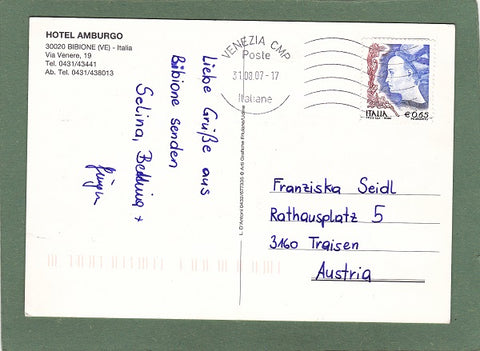 HOTEL AMBURGO
30020 BIBIONE (VE) - Italia
Via Venere, 19
Tel. 0431/43441
Ab. Tel. 0431/438013
VENEZIA CMP
Poste
31.08.07-17
Italiane
ITALIA
€ 0,65
Liebe Grüße aus
Bibione senden
Selina, Bettina +
Jürgen
Franziska Seidl
Rathausplatz 5
3160 Traisen
Austria